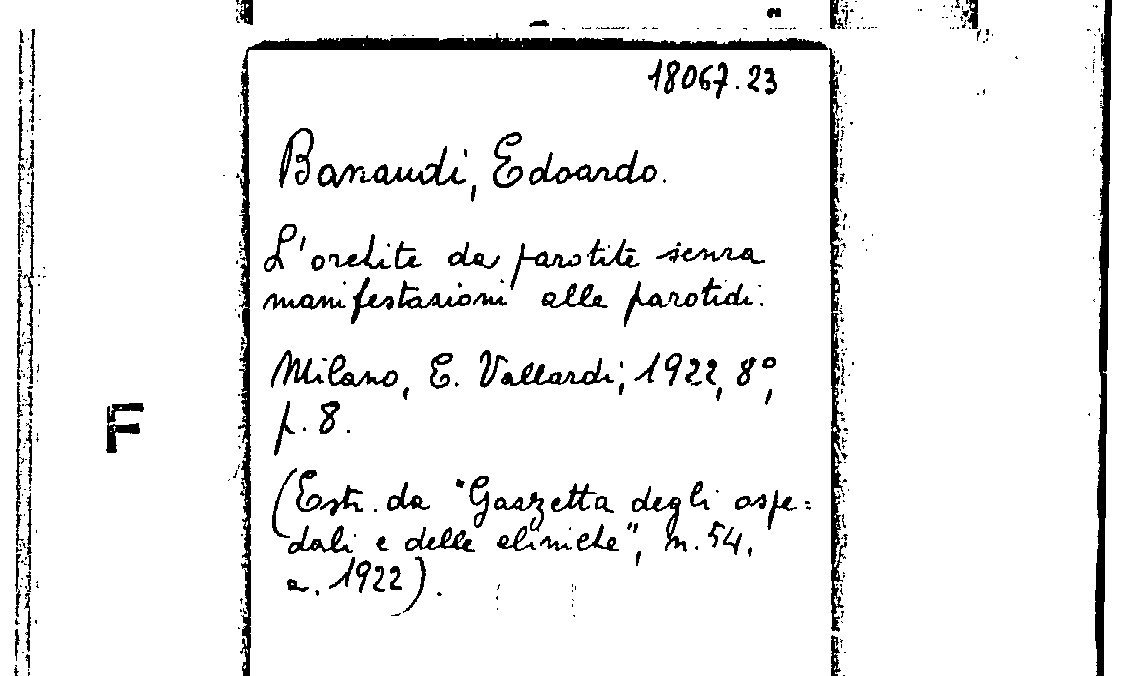 18067.23
Banaudi, Edoardo.
L'orchite da parotite senza
manifestazioni alle parotidi.
Milano, E. Vallardi, 1922, 8°,
p. 8.
F
(Estr. da "Gazzetta degli ospe=
dali e delle cliniche", n. 54,
a. 1922).